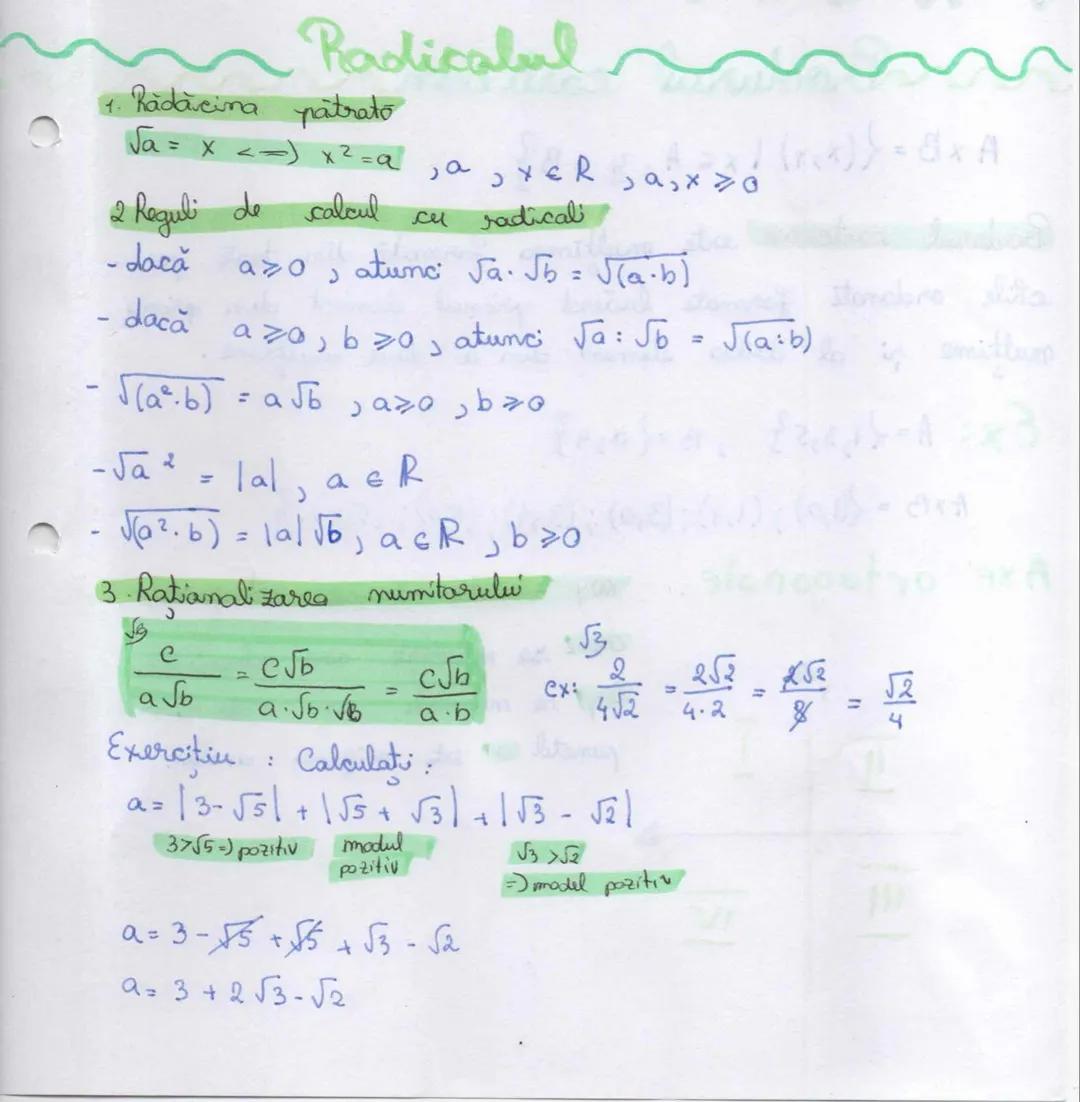 Radicalul
1. Rădăcina pătrată
√a = x <=> x² = a , a , x ∈ R , a,x ⩾ 0
2 Reguli de calcul cu radicali
- dacă a ⩾ 0 , atunci √a · √b = √(a·b)
- dacă a ⩾ 0, b ⩾ 0 , atunci √a : √b = √(a:b)
- √(a²·b) = a√b , a ⩾ 0 , b ⩾ 0
- √a² = |a| , a ∈ R
- √(a²·b) = |a|√b , a ∈ R , b ⩾ 0
3. Raționalizarea numitorului
√b) c / a√b = c√b / a·√b·√b = c√b / a·b
ex: √3 2 / 4√2 = 2√2 / 4·2 = 2√2 / 8 = √2 / 4
Exercițiu : Calculați :
a = |3 - √5| + |√5 + √3| + |√3 - √2|
3>√5 => pozitiv modul pozitiv √3 > √2 => model pozitiv
a = 3 - √5 + √5 + √3 - √2
a = 3 + 2√3 - √2